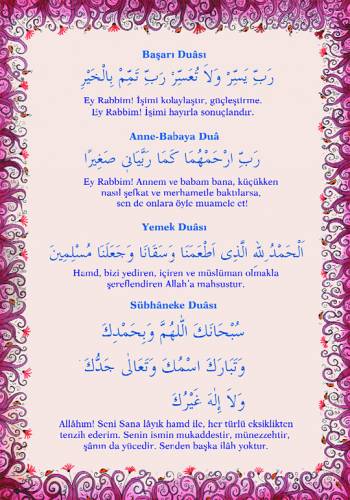 Başarı Duâsı
رَبِّ يَسِّرْ وَلَا تُعَسِّرْ رَبِّ تَمِّمْ بِالْخَيْرِ
Ey Rabbim! İşimi kolaylaştır, güçleştirme.
Ey Rabbim! İşimi hayırla sonuçlandır.
Anne-Babaya Duâ
رَبِّ ارْحَمْهُمَا كَمَا رَبَّيَانِي صَغِيرًا
Ey Rabbim! Annem ve babam bana, küçükken
nasıl şefkat ve merhametle baktılarsa,
sen de onlara öyle muamele et!
Yemek Duâsı
اَلْحَمْدُ لِلّٰهِ الَّذِى اَطْعَمَنَا وَسَقَانَا وَجَعَلَنَا مُسْلِمِينَ
Hamd, bizi yediren, içiren ve müslüman olmakla
şereflendiren Allah'a mahsustur.
Sübhâneke Duâsı
سُبْحَانَكَ اللّٰهُمَّ وَبِحَمْدِكَ
وَتَبَارَكَ اسْمُكَ وَتَعَالٰى جَدُّكَ
وَلَا إِلٰهَ غَيْرُكَ
Allâhım! Seni Sana lâyık hamd ile, her türlü eksiklikten
tenzih ederim. Senin ismin mukaddestir, münezzehtir,
şânın da yücedir. Senden başka ilâh yoktur.